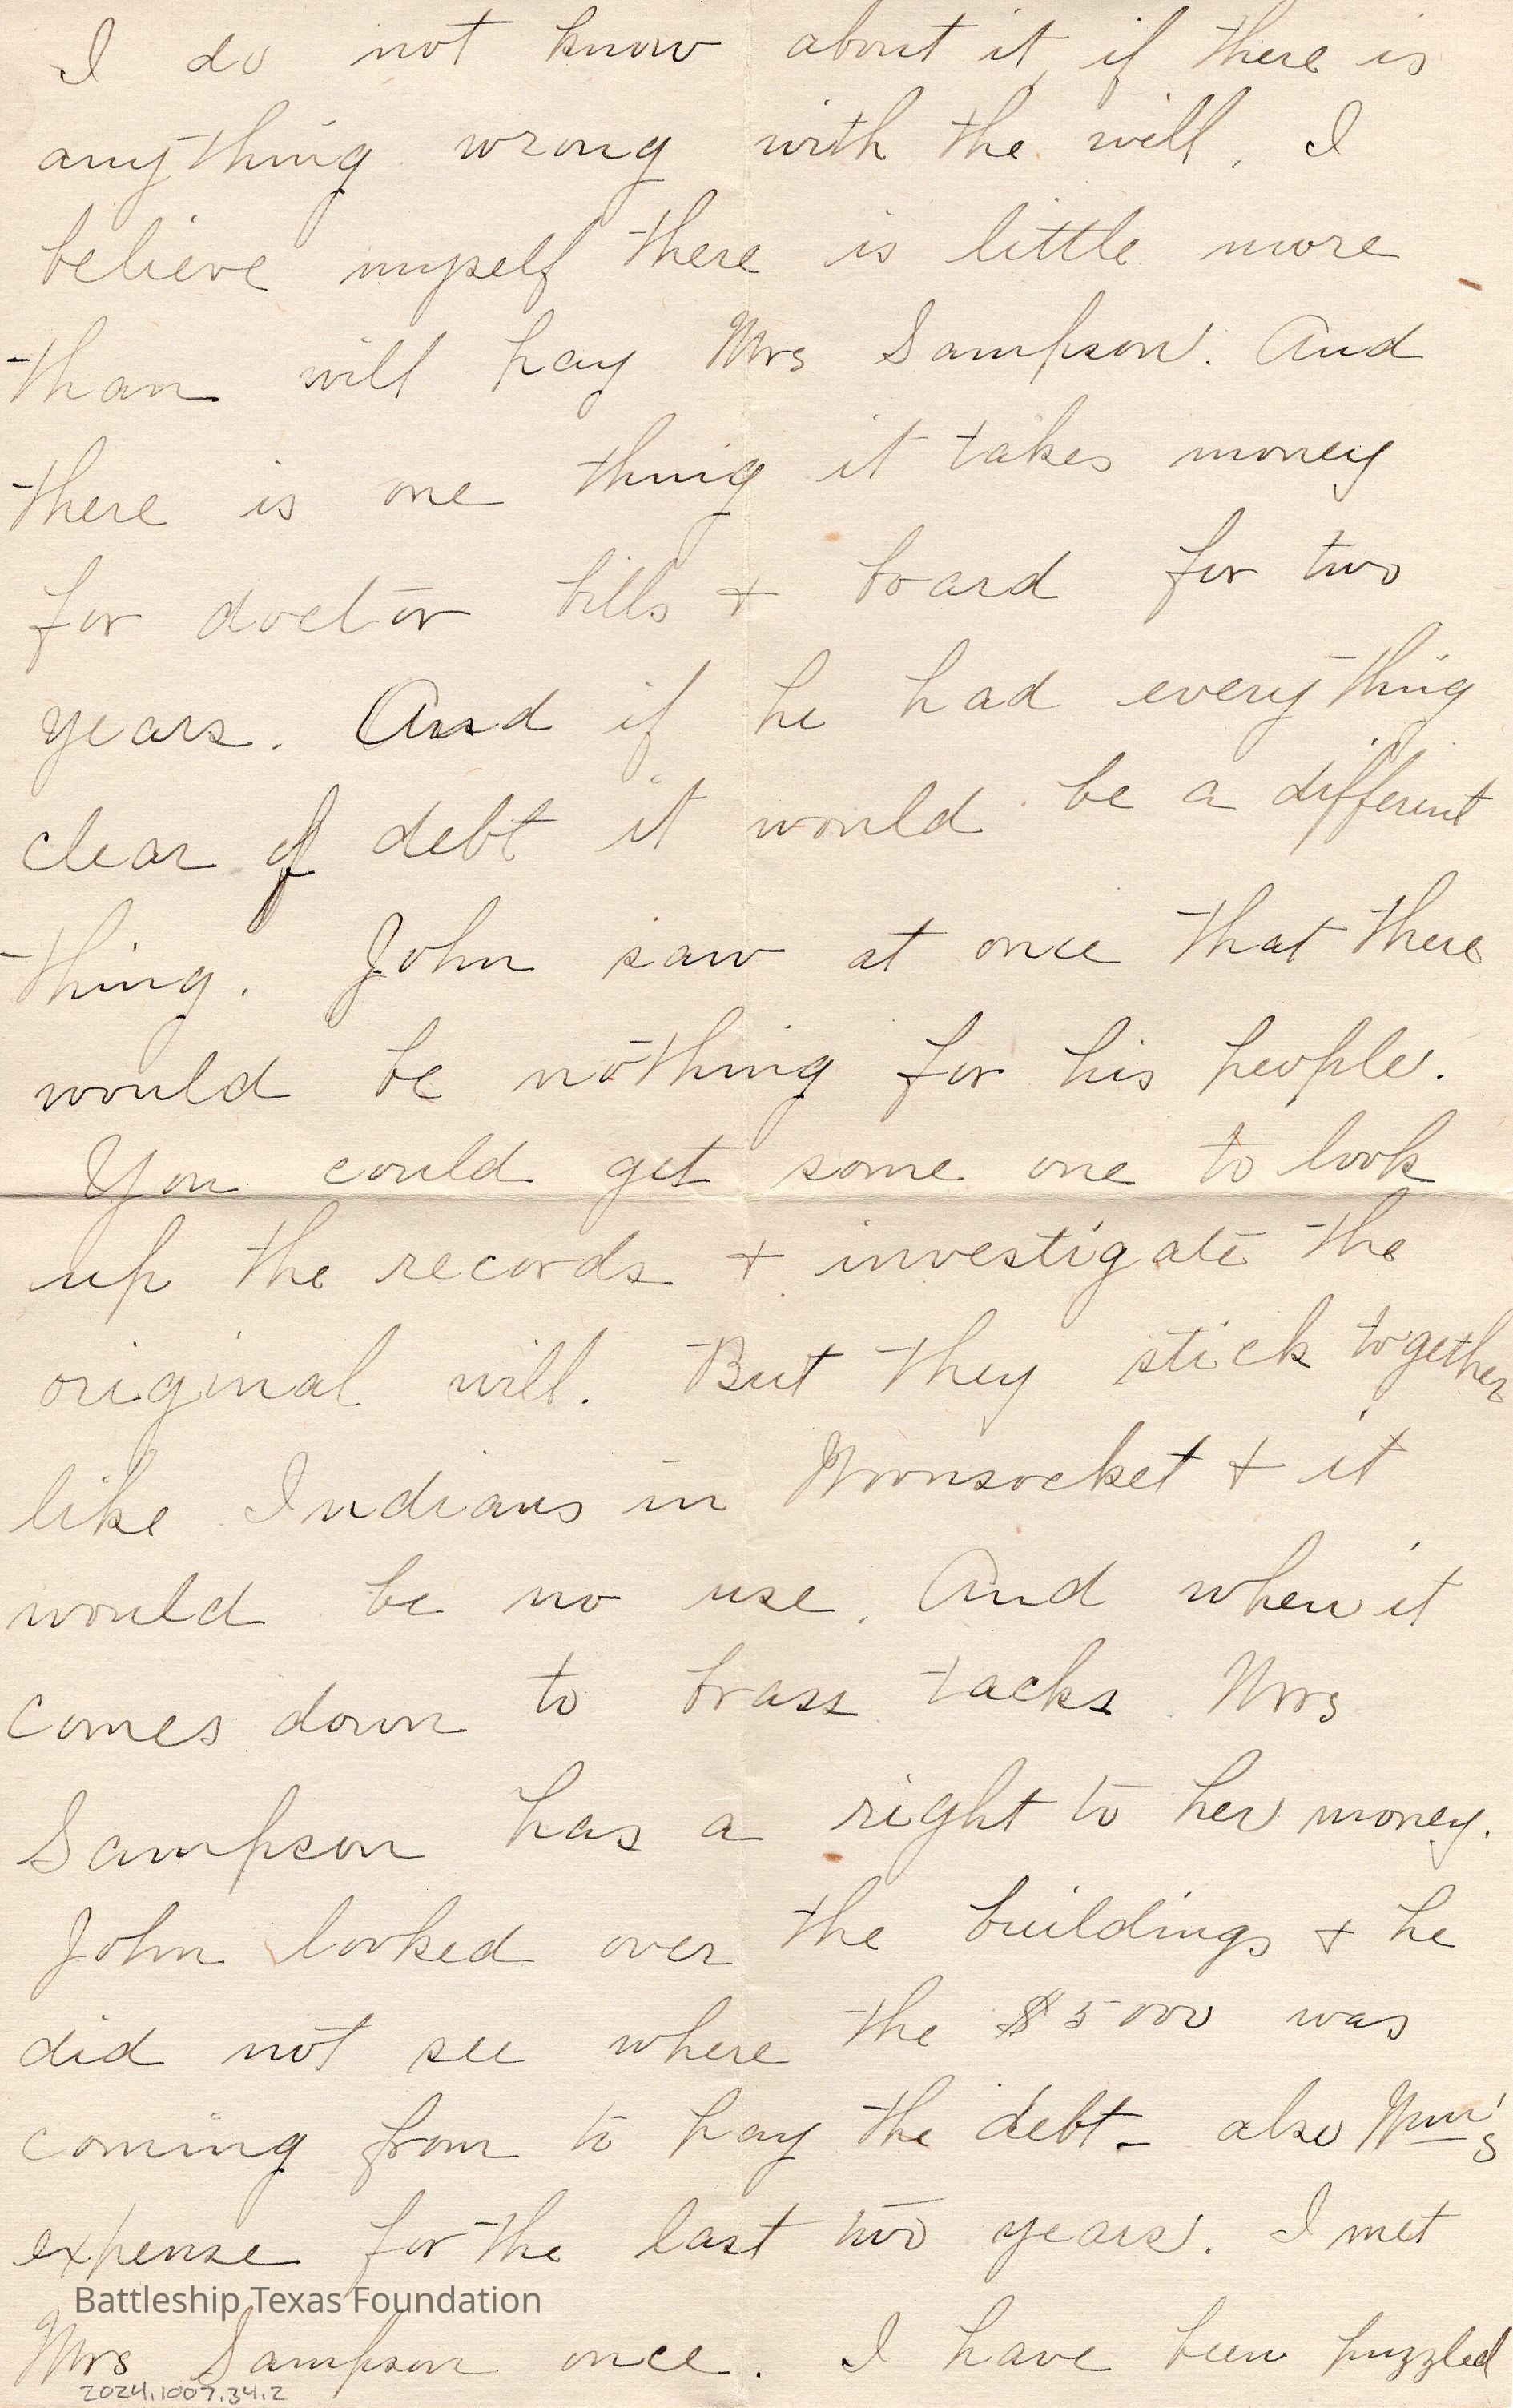 I do not know about it, if there is
anything wrong with the will. I
believe myself there is little more
than will pay Mrs Sampson. And
there is one thing it takes money
for doctor bills + board for two
years. And if he had everything
clear of debt it would be a different
thing. John saw at once that there
would be nothing for his people.
You could get some one to look
up the records + investigate the
original will. But they stick together
like Indians in Woonsocket + it
would be no use. And when it
comes down to brass tacks Mrs
Sampson has a right to her money.
John looked over the buildings + he
did not see where the $5000 was
coming from to pay the debt - also Wm's
expense for the last two years. I met
Battleship Texas Foundation
Mrs Sampson once. I have been puzzled
2024.1007.34.2